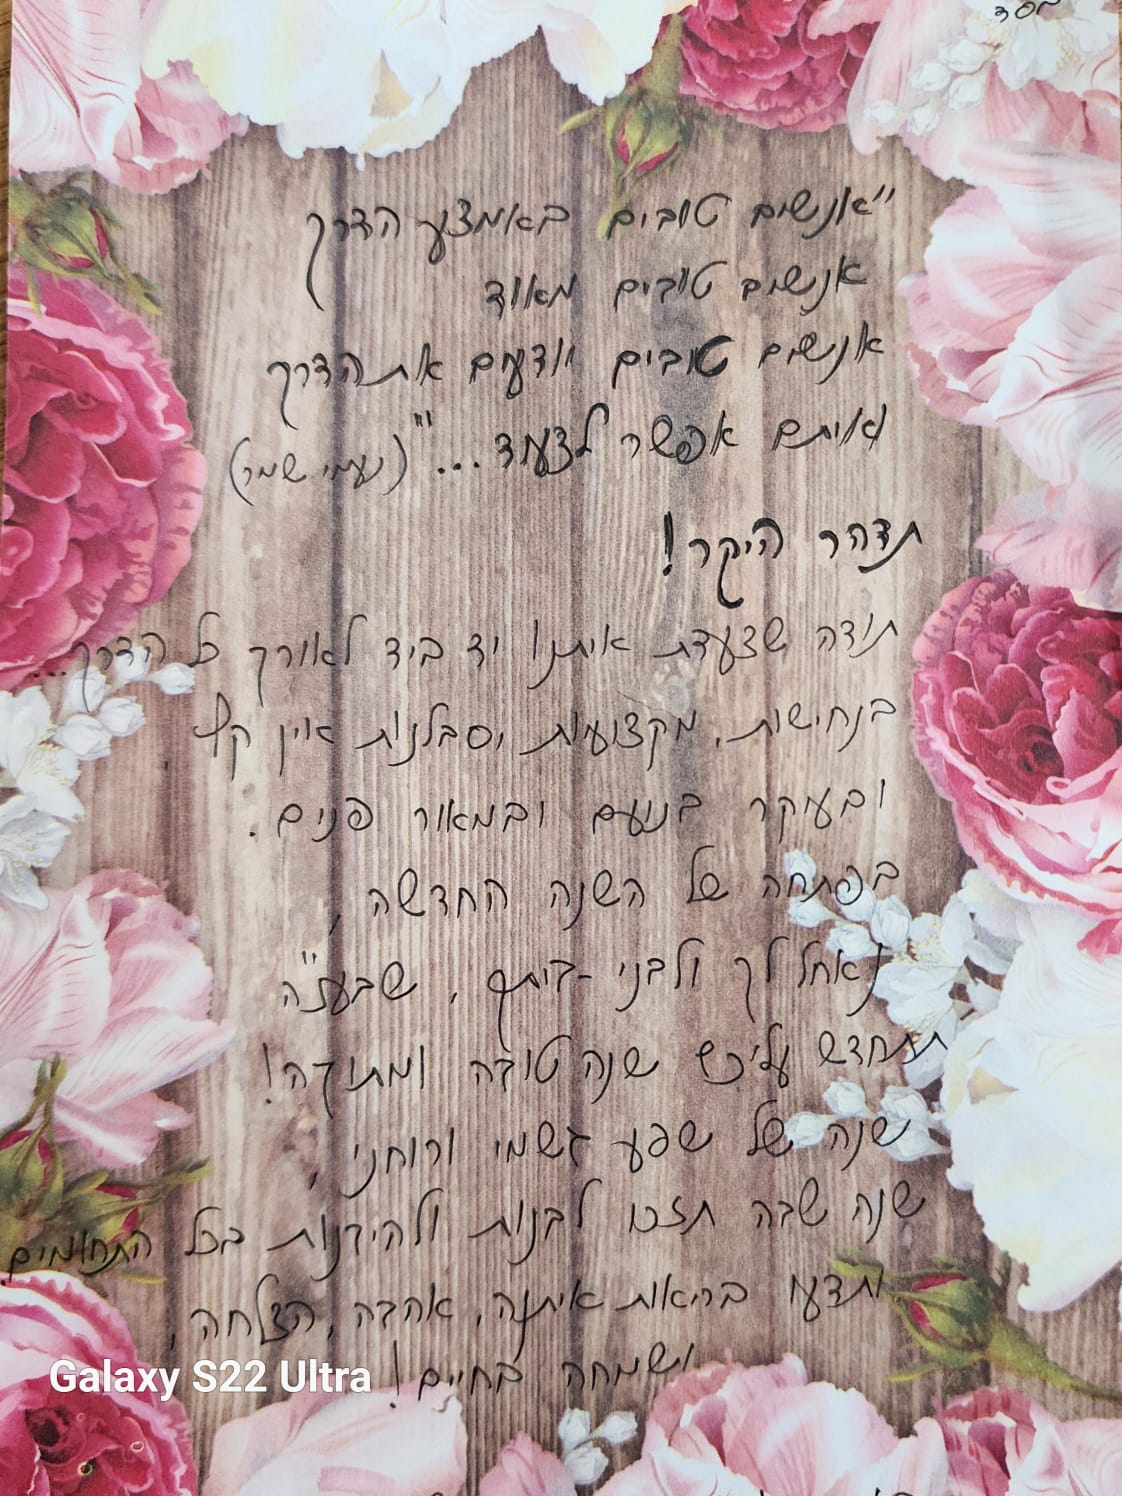 בס"ד
"אנשים טובים באמצע הדרך
אנשים טובים מאוד
אנשים טובים יודעים את הדרך
ואיתם אפשר לצעוד..." (נעמי שמר)
תדהר היקר!
תודה שצעדת איתנו יד ביד לאורך כל הדרך...
בנחישות, מקצועיות, סבלנות אין קץ,
ובעיקר בנועם ובמאור פנים.
בפתחה של השנה החדשה,
נאחל לך ולבני ביתך, שבעז"ה
תתחדש עליכם שנה טובה ומתוקה!
שנה של שפע גשמי ורוחני,
שנה שבה תזכו לבנות ולהיבנות בכל התחומים.
ותדעו בריאות איתנה, אהבה, הצלחה,
ושמחה בחיים!
Galaxy S22 Ultra